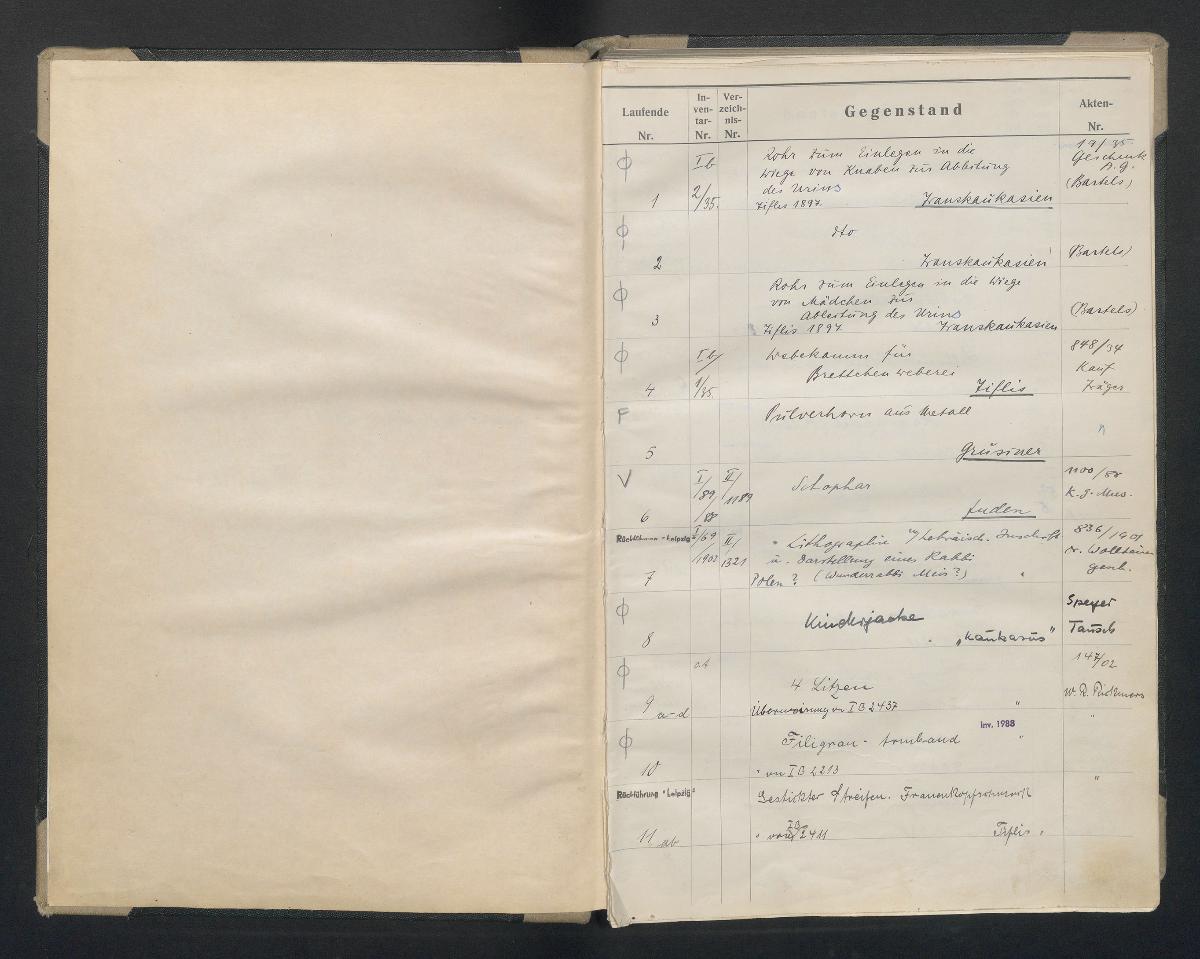 Laufende Nr.
In-ven-tar-Nr.
Ver-zeich-nis-Nr.
Gegenstand
Akten-Nr.
ϕ
Ib
Rohr zum Einlegen in die
19/35
Geschenk
Wiege von Knaben zur Ableitung
B.G.
des Urins
(Bartels)
1
2/35.
Tiflis 1897
Transkaukasien
ϕ
dto
2
Transkaukasien
Bartels)
ϕ
Rohr zum Einlegen in die Wiege
von Mädchen zur
3
Ableitung des Urins
(Bartels)
Tiflis 1897
Transkaukasien
ϕ
Ib/
Webekamm für
848/34
Brettchenweberei
Kauf
4
1/35.
Tiflis
Träger
F
Pulverhorn aus Metall
"
5
Grusiner
V
I/89/88
II/1189
Schophar
1100/88
K. G. Mus.
6
Juden
Rückführung "Leipzig"
I/69/1902
II/1321
" Lithographie m/hebräisch. Inschrift
836/1901
u. Darstellung eines Rabbi
v. Wollheim
7
Polen? (Wunderrabbi Meis?) "
gesch.
ϕ
Kinderjacke
Speyer
8
"Kaukasus"
Tausch
ϕ
147/02
4 Litzen
W. R. Rickmers
9 a-d
Überweisung v. IB 2437
"
Inv. 1988
ϕ
Filigran-Armband
"
"
10
" von IB 2213
Rückführung "Leipzig"
Gestickter Streifen. Frauenkopfschmuck
"
11 ab
" von IB 2411
Tiflis "